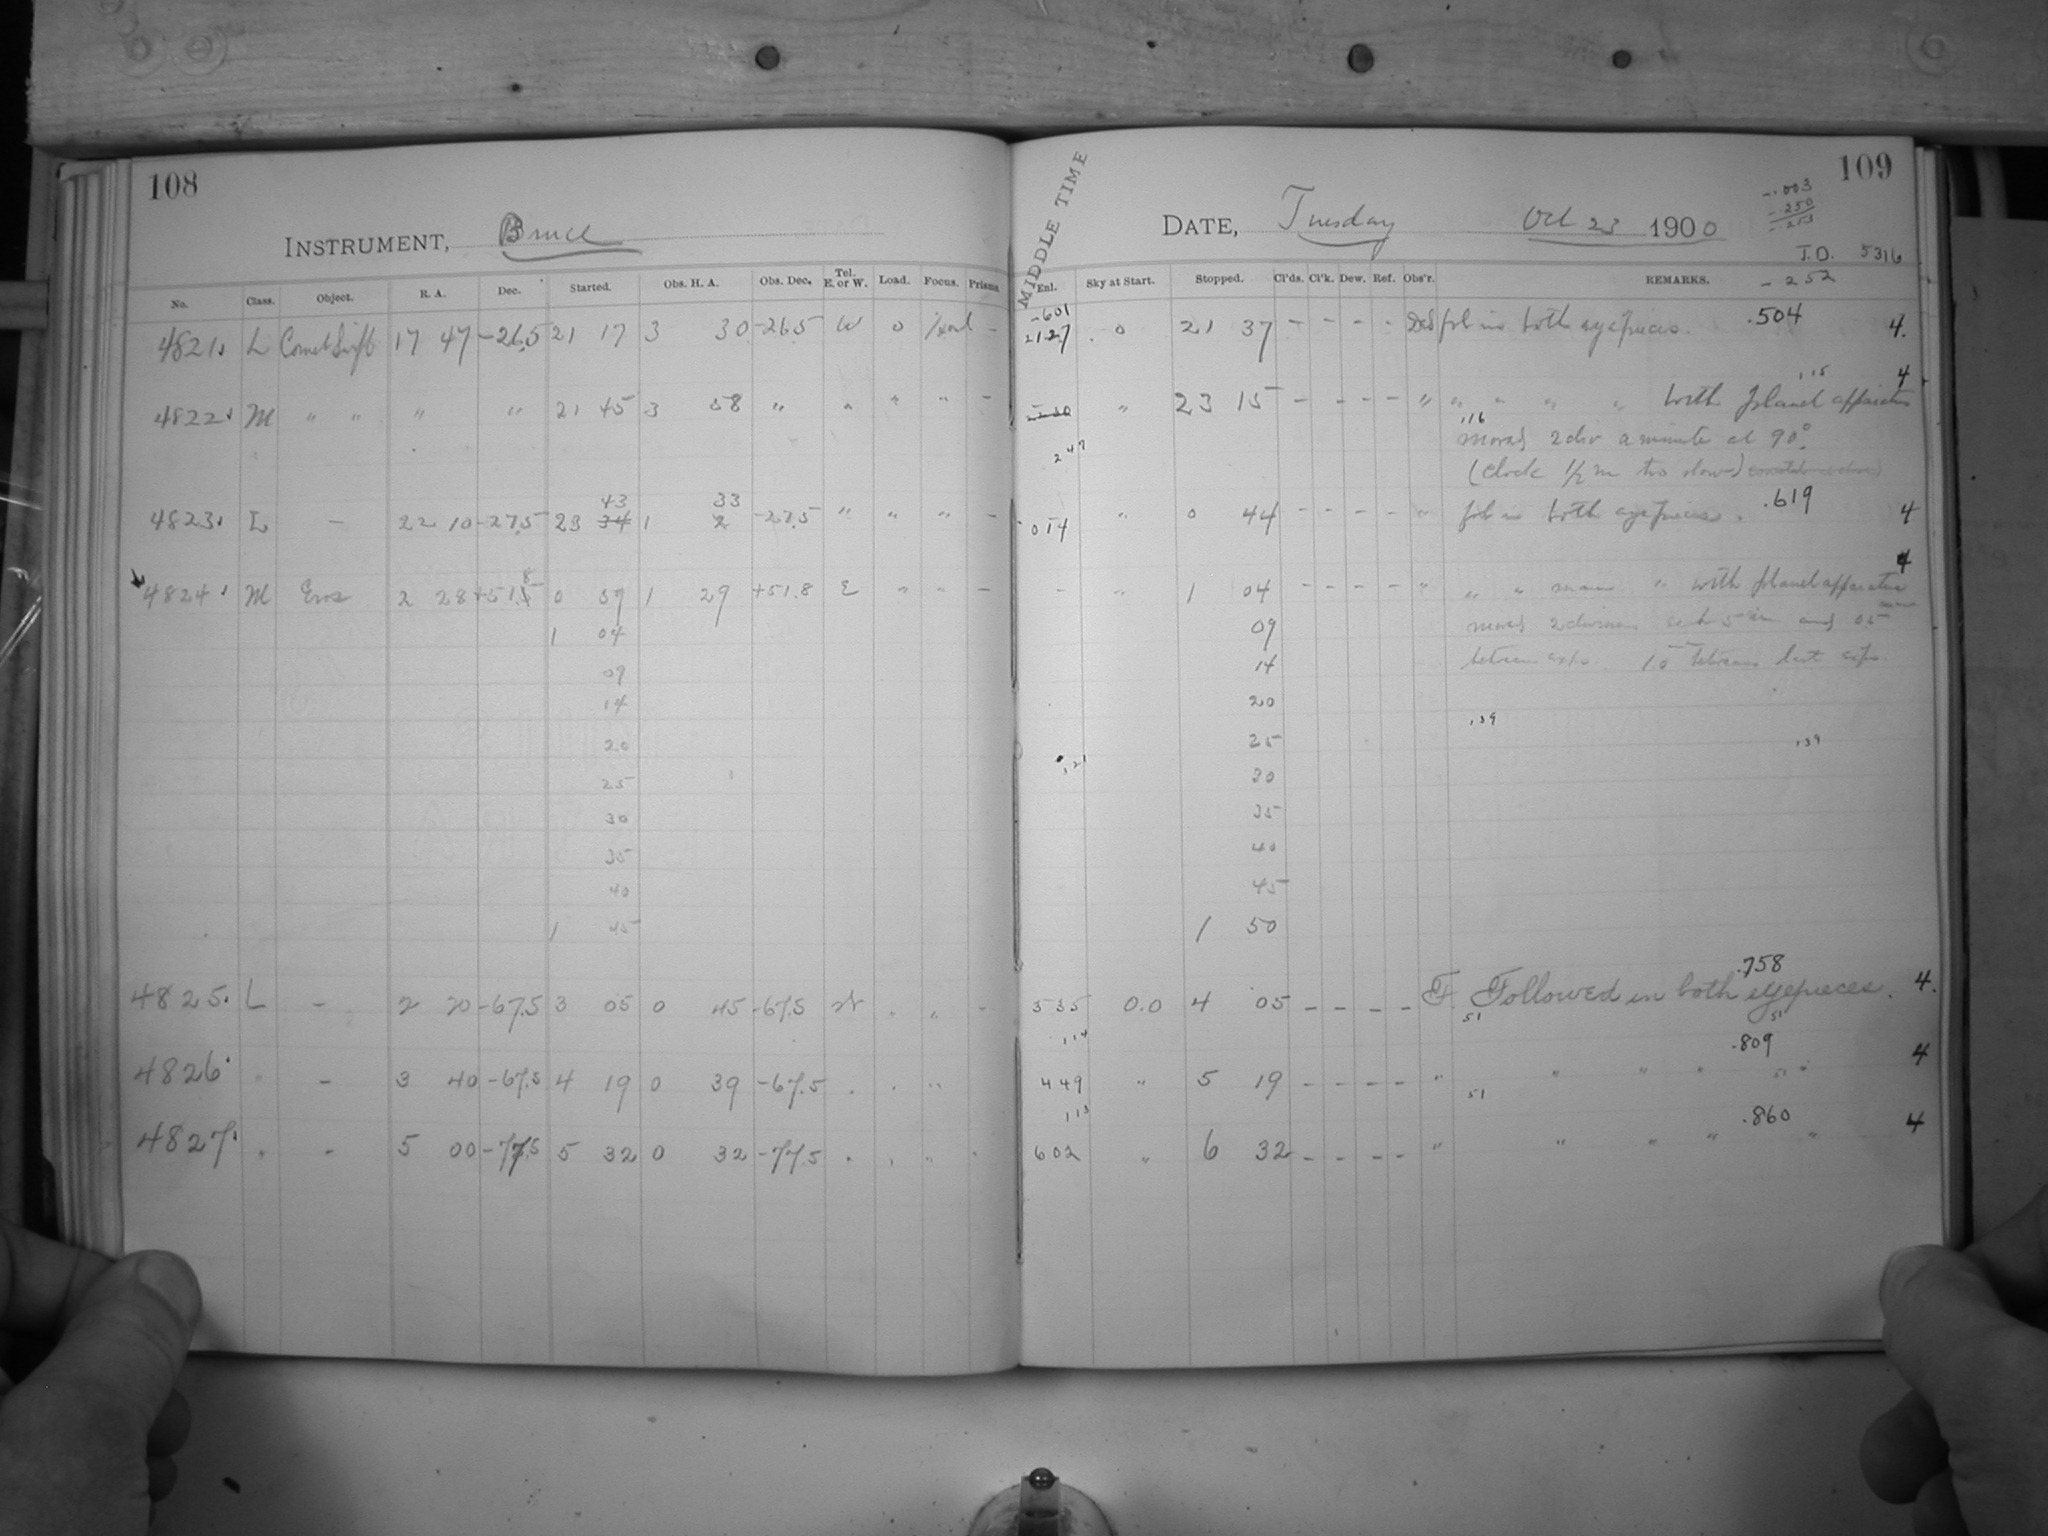 108
INSTRUMENT, Bruce
No. Class. Object. R. A. Dec. Started. Obs. H. A. Obs. Dec. Tel. E. or W. Load. Focus. Prisms
4821. L Comet Swift 17 47 -26.5 21 17 3 30 -26.5 W 0 -
4822. M " " " " 21 45 3 58 " " " " -
43 33
4823. L - 22 10 -27.5 23 34 1 2 -27.5 " " " -
8
4824. M Eros 2 28 +51.5 0 59 1 29 +51.8 E " " -
1 04
09
14
20
25
30
35
40
1 45
4825. L - 2 20 -67.5 3 05 0 45 -67.5 W . " -
4826. " - 3 40 -67.5 4 19 0 39 -67.5 . . "
4827. " - 5 00 -77.5 5 32 0 32 -77.5 . . " "
109
MIDDLE TIME
DATE, Tuesday Oct 23 1900
-.003
-.250
-.253
J.D. 5316
-252
Enl. Sky at Start. Stopped. Cl'ds. Cl'k. Dew. Ref. Obs'r. REMARKS.
-601
2127 0 21 37 - - - - fol in both eyepieces. .504 4.
.115 4
" 23 15 - - - - " " " " " with planet apparatus
.116
247 moved 2 div a minute at 90°.
(clock 1/2 m too slow)
014 " 0 44 - - - - " fol in both eyepieces. .619 4
4
- " 1 04 - - - - " " " " with planet apparatus
09 moved 2 divisions each 5 min and 05
14 between exps. 10 between last exps.
20
.139
25 .139
.121
30
35
40
45
1 50
.758
335 0.0 4 05 - - - - F. Followed in both eyepieces. 4.
51 51
.114 .809
449 " 5 19 - - - - " " " " " 4
51 51
.113 .860
602 " 6 32 - - - - " " " " " 4